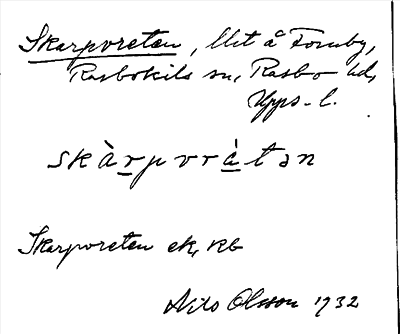 Skarpvreten, lht å Fornby,
Rasbokils sn, Rasbo hd,
Upps. l.
skàrpvrátən
Skarpvreten ek, kb
Nils Olsson 1932